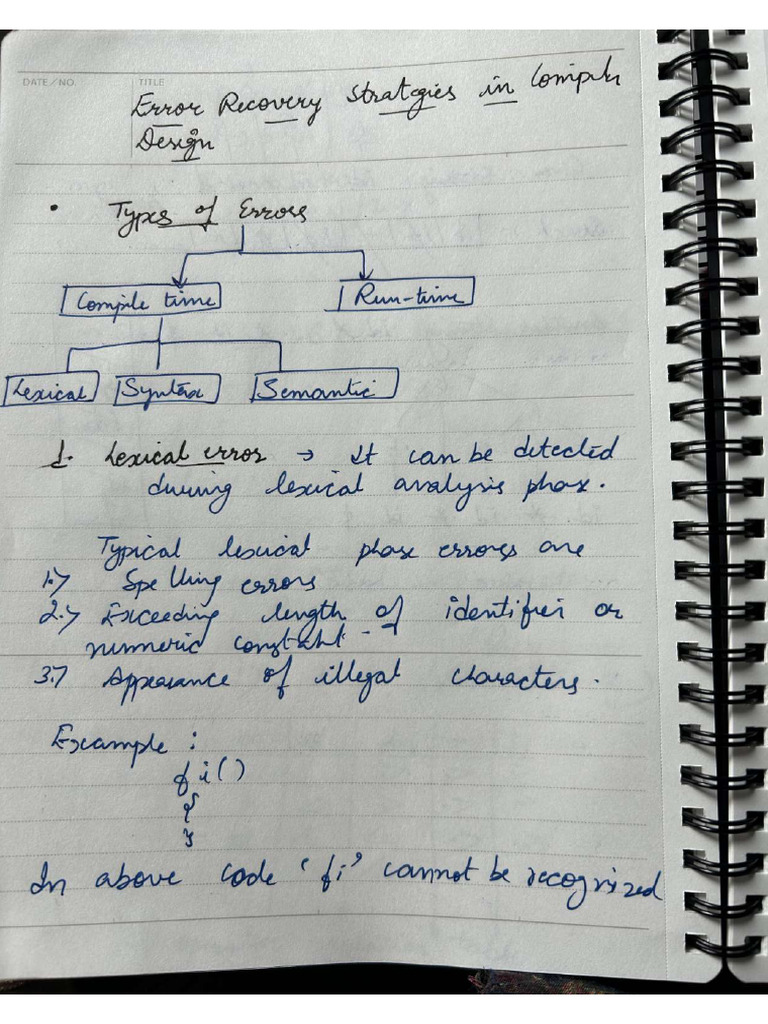 DATE/NO. TITLE
Error Recovery Strategies in Compiler
Design
• Types of Errors
Compile time Run-time
Lexical Syntax Semantic
1. Lexical error → It can be detected
during lexical analysis phase.
Typical lexical phase errors are
1.> Spelling errors
2.> Exceeding length of identifier or
numeric constant.
3.> Appearance of illegal characters.
Example :
fi()
{
}
In above code 'fi' cannot be recognized